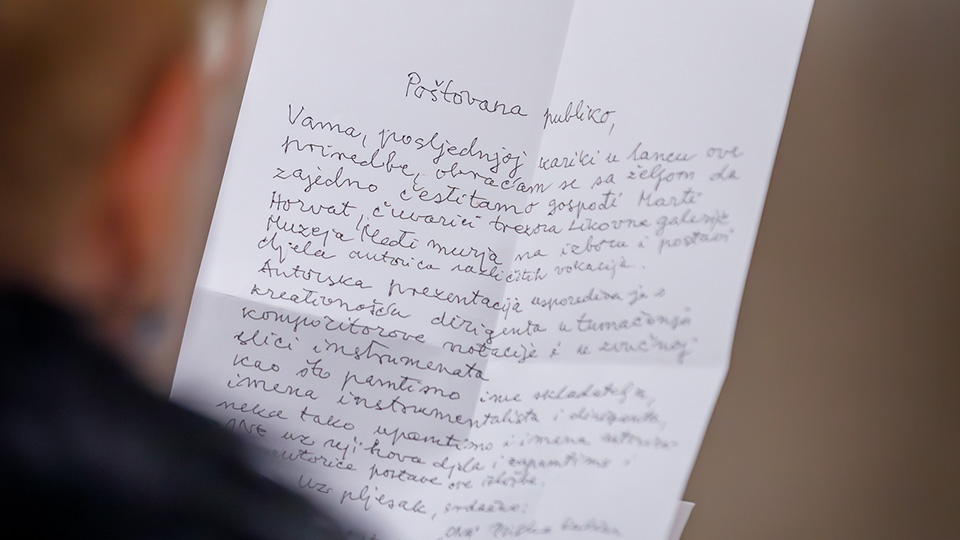 Poštovana publiko,
Vama, posljednjoj kariki u lancu ove
priredbe, obraćam se sa željom da
zajedno čestitamo gospođi Marti
Horvat, čuvarici trezora Likovne galerije
Muzeja Međimurja na izboru i postavi
djela autorica različitih vokacija.
Autorska prezentacija usporediva je s
kreativnošću dirigenta u tumačenju
kompozitorove notacije i u zvučnoj
slici instrumenata
kao što pamtimo ime skladatelja,
imena instrumentalista i dirigenta,
neka tako upamtimo i imena
uz njihova djela i zapamtimo i
autorice postave ove izložbe.
Uz pljesak, srdačno: